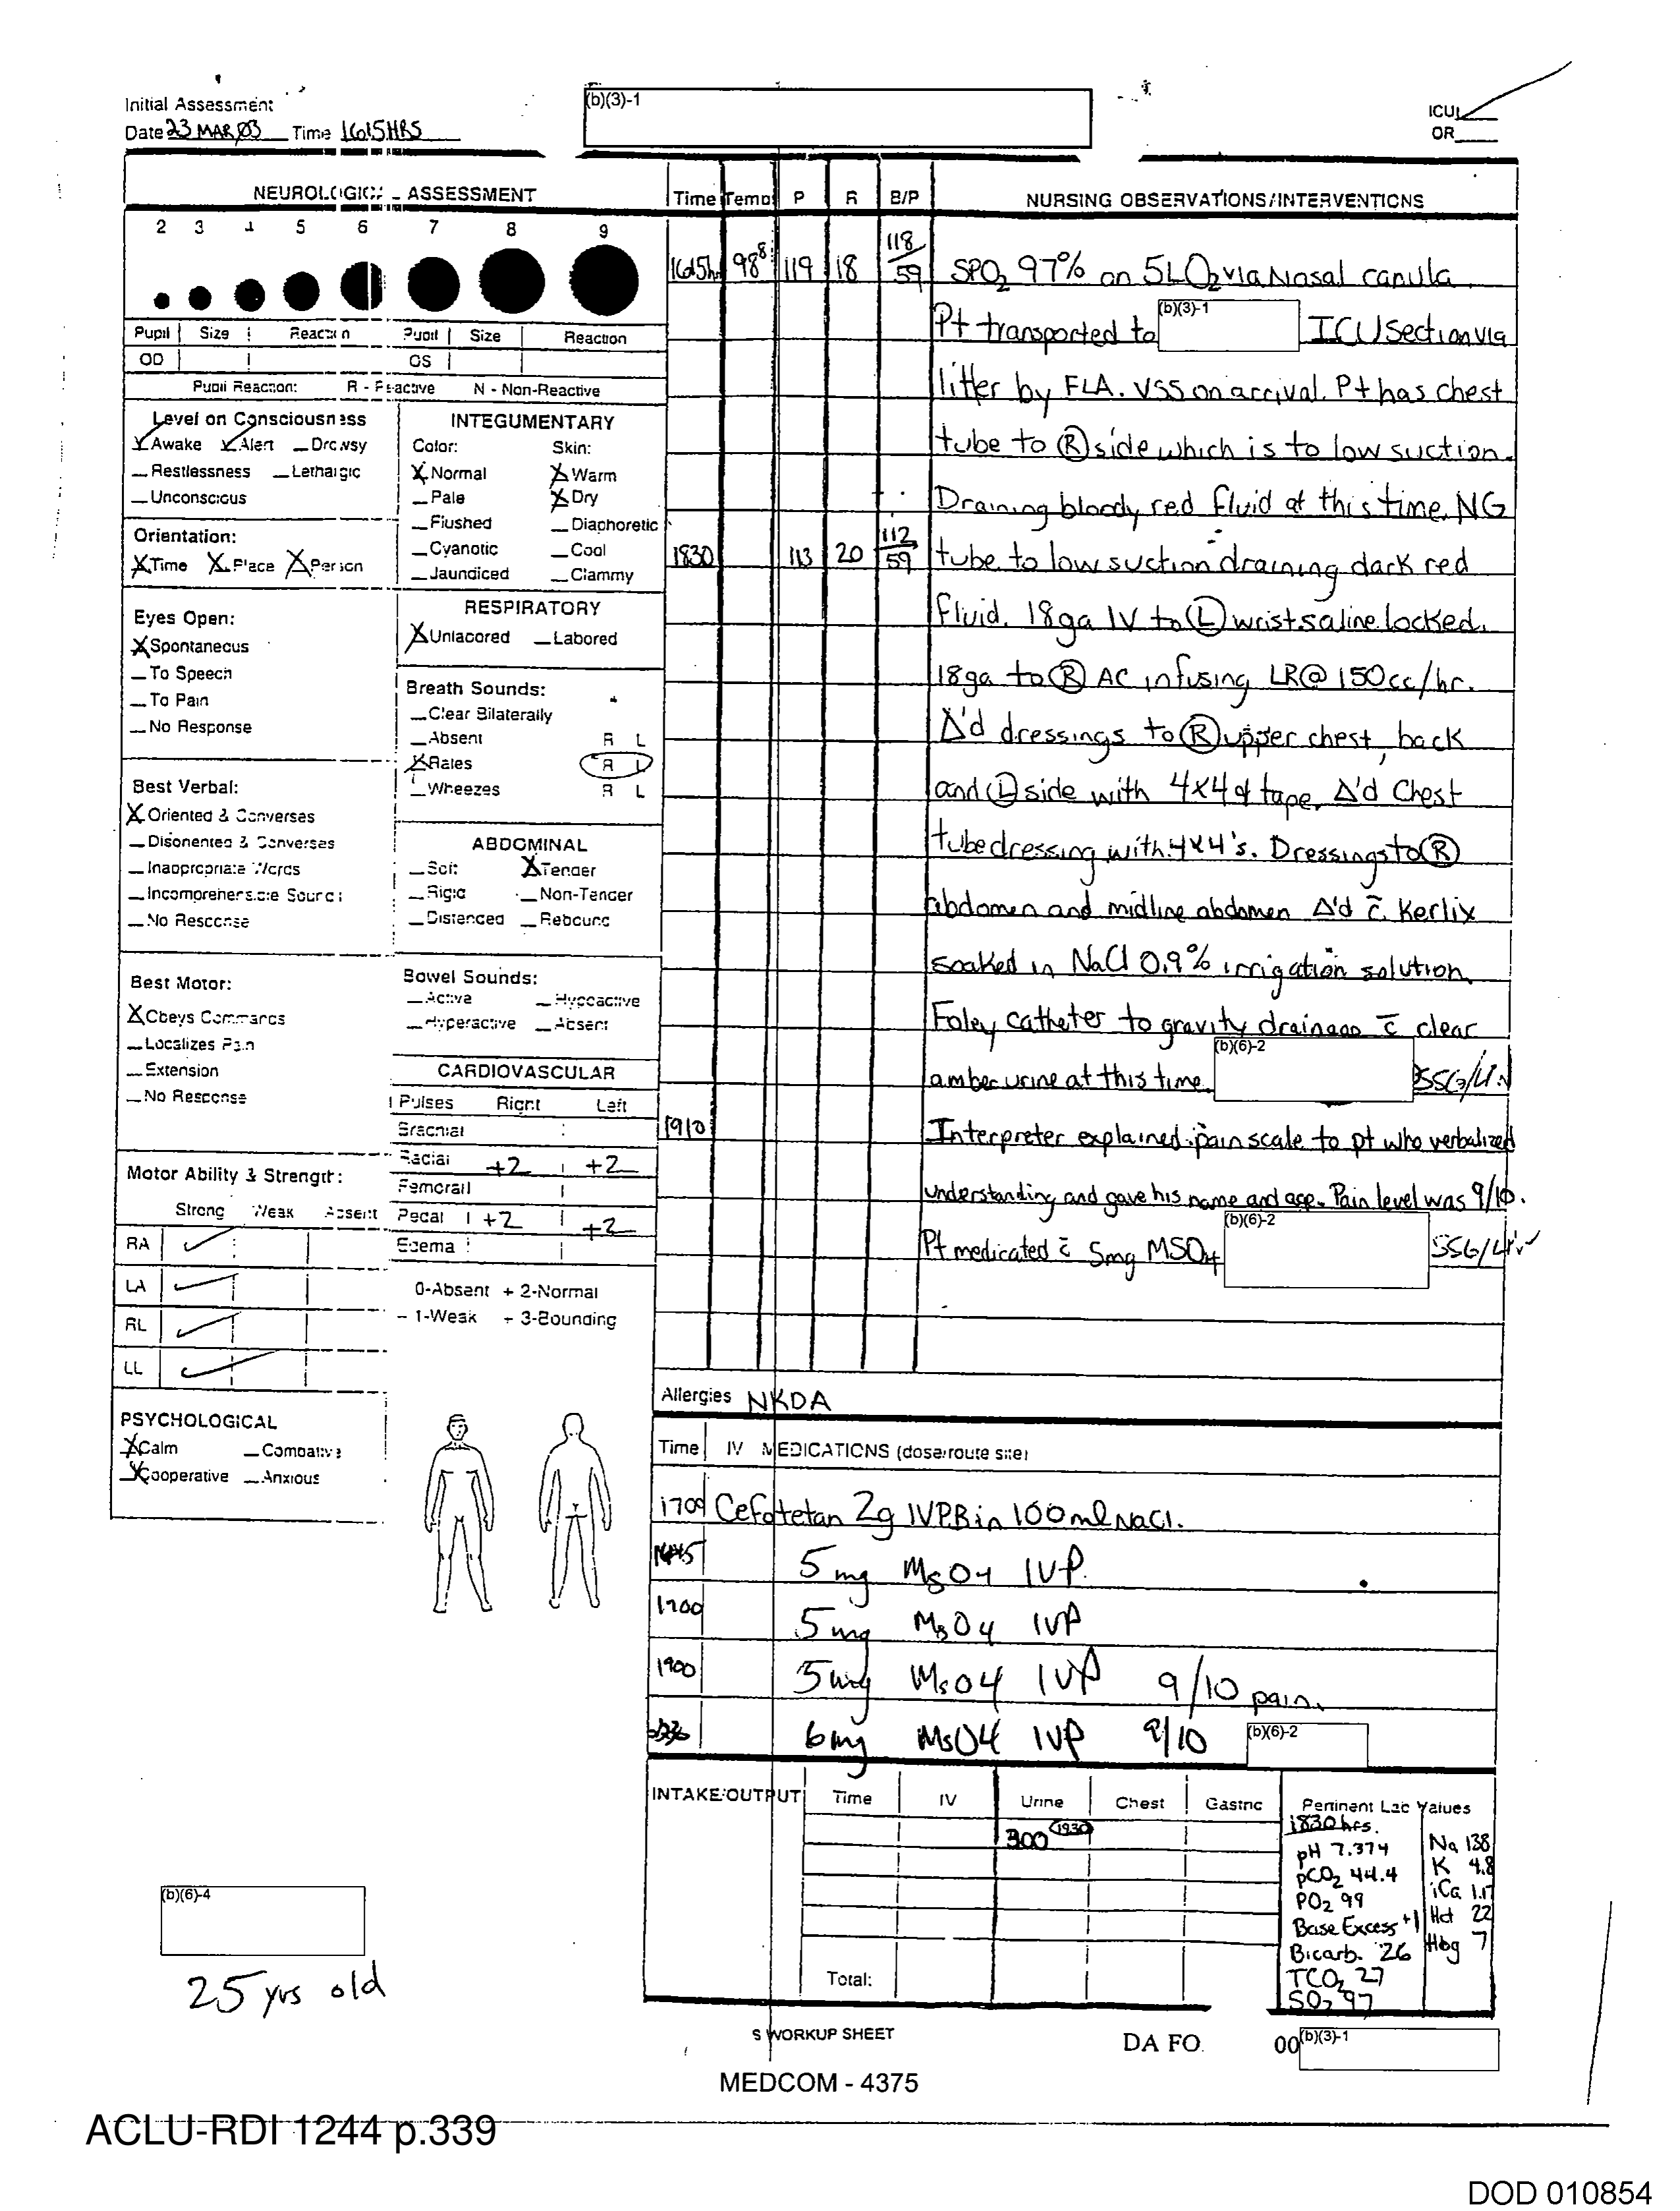 Initial Assessment
Date 23 MAR 03 Time 1615HRS
(b)(3)-1
ICU
OR
NEUROLOGIC ASSESSMENT
2 3 4 5 6 7 8 9
Pupil Size Reaction Pupil Size Reaction
OD OS
Pupil Reaction: R - Reactive N - Non-Reactive
Level on Consciousness
Awake Alert Drowsy
Restlessness Lethargic
Unconscious
Orientation:
Time Place Person
Eyes Open:
Spontaneous
To Speech
To Pain
No Response
Best Verbal:
Oriented & Converses
Disoriented & Converses
Inappropriate Words
Incomprehensible Sound
No Response
Best Motor:
Obeys Commands
Localizes Pain
Extension
No Response
Motor Ability & Strength:
Strong Weak Absent
RA
LA
RL
LL
PSYCHOLOGICAL
Calm Combative
Cooperative Anxious
INTEGUMENTARY
Color: Skin:
Normal Warm
Pale Dry
Flushed Diaphoretic
Cyanotic Cool
Jaundiced Clammy
RESPIRATORY
Unlabored Labored
Breath Sounds:
Clear Bilaterally
Absent R L
Rales R L
Wheezes R L
ABDOMINAL
Soft Tender
Rigid Non-Tender
Distended Rebound
Bowel Sounds:
Active Hypoactive
Hyperactive Absent
CARDIOVASCULAR
Pulses Right Left
Brachial
Radial +2 +2
Femoral
Pedal +2 +2
Edema
0-Absent + 2-Normal
- 1-Weak + 3-Bounding
Time Temp P R B/P
NURSING OBSERVATIONS/INTERVENTIONS
1615h 98⁸ 119 18 118/59 SPO₂ 97% on 5L O₂ via Nasal canula
Pt transported to (b)(3)-1 ICU Section via
litter by FLA. VSS on arrival. Pt has chest
tube to Ⓡ side which is to low suction.
Draining bloody red fluid at this time. NG
1830 113 20 112/59 tube to low suction draining dark red
fluid. 18ga IV to Ⓛ wrist saline locked.
18ga to Ⓡ AC infusing LR@ 150cc/hr.
Δ'd dressings to Ⓡ upper chest, back
and Ⓛ side with 4x4 & tape. Δ'd Chest
tube dressing with 4x4's. Dressings to Ⓡ
abdomen and midline abdomen Δ'd c̄ Kerlix
soaked in NaCl 0.9% irrigation solution.
Foley catheter to gravity drainage c̄ clear
amber urine at this time. (b)(6)-2
1910 Interpreter explained pain scale to pt who verbalized
understanding and gave his name and age. Pain level was 9/10.
Pt medicated c̄ 5mg MSO4 (b)(6)-2
Allergies NKDA
Time IV MEDICATIONS (dose/route site)
1700 Cefotetan 2g IVPB in 100ml NaCl.
5 mg MsO4 IVP
1700 5 mg MsO4 IVP
1900 5 mg MsO4 IVP 9/10 pain.
6mg MsO4 IVP 9/10 (b)(6)-2
INTAKE/OUTPUT Time IV Urine Chest Gastric
300 1930
Total:
Pertinent Lab Values
1830 hrs.
pH 7.374 Na 138
pCO₂ 44.4 K 4.8
PO₂ 99 iCa 1.17
Base Excess +1 Hct 22
Bicarb. 26 Hbg 7
TCO₂ 27
SO₂ 97
(b)(6)-4
25 yrs old
S WORKUP SHEET
DA FO
00 (b)(3)-1
MEDCOM - 4375
ACLU-RDI 1244 p.339
DOD 010854